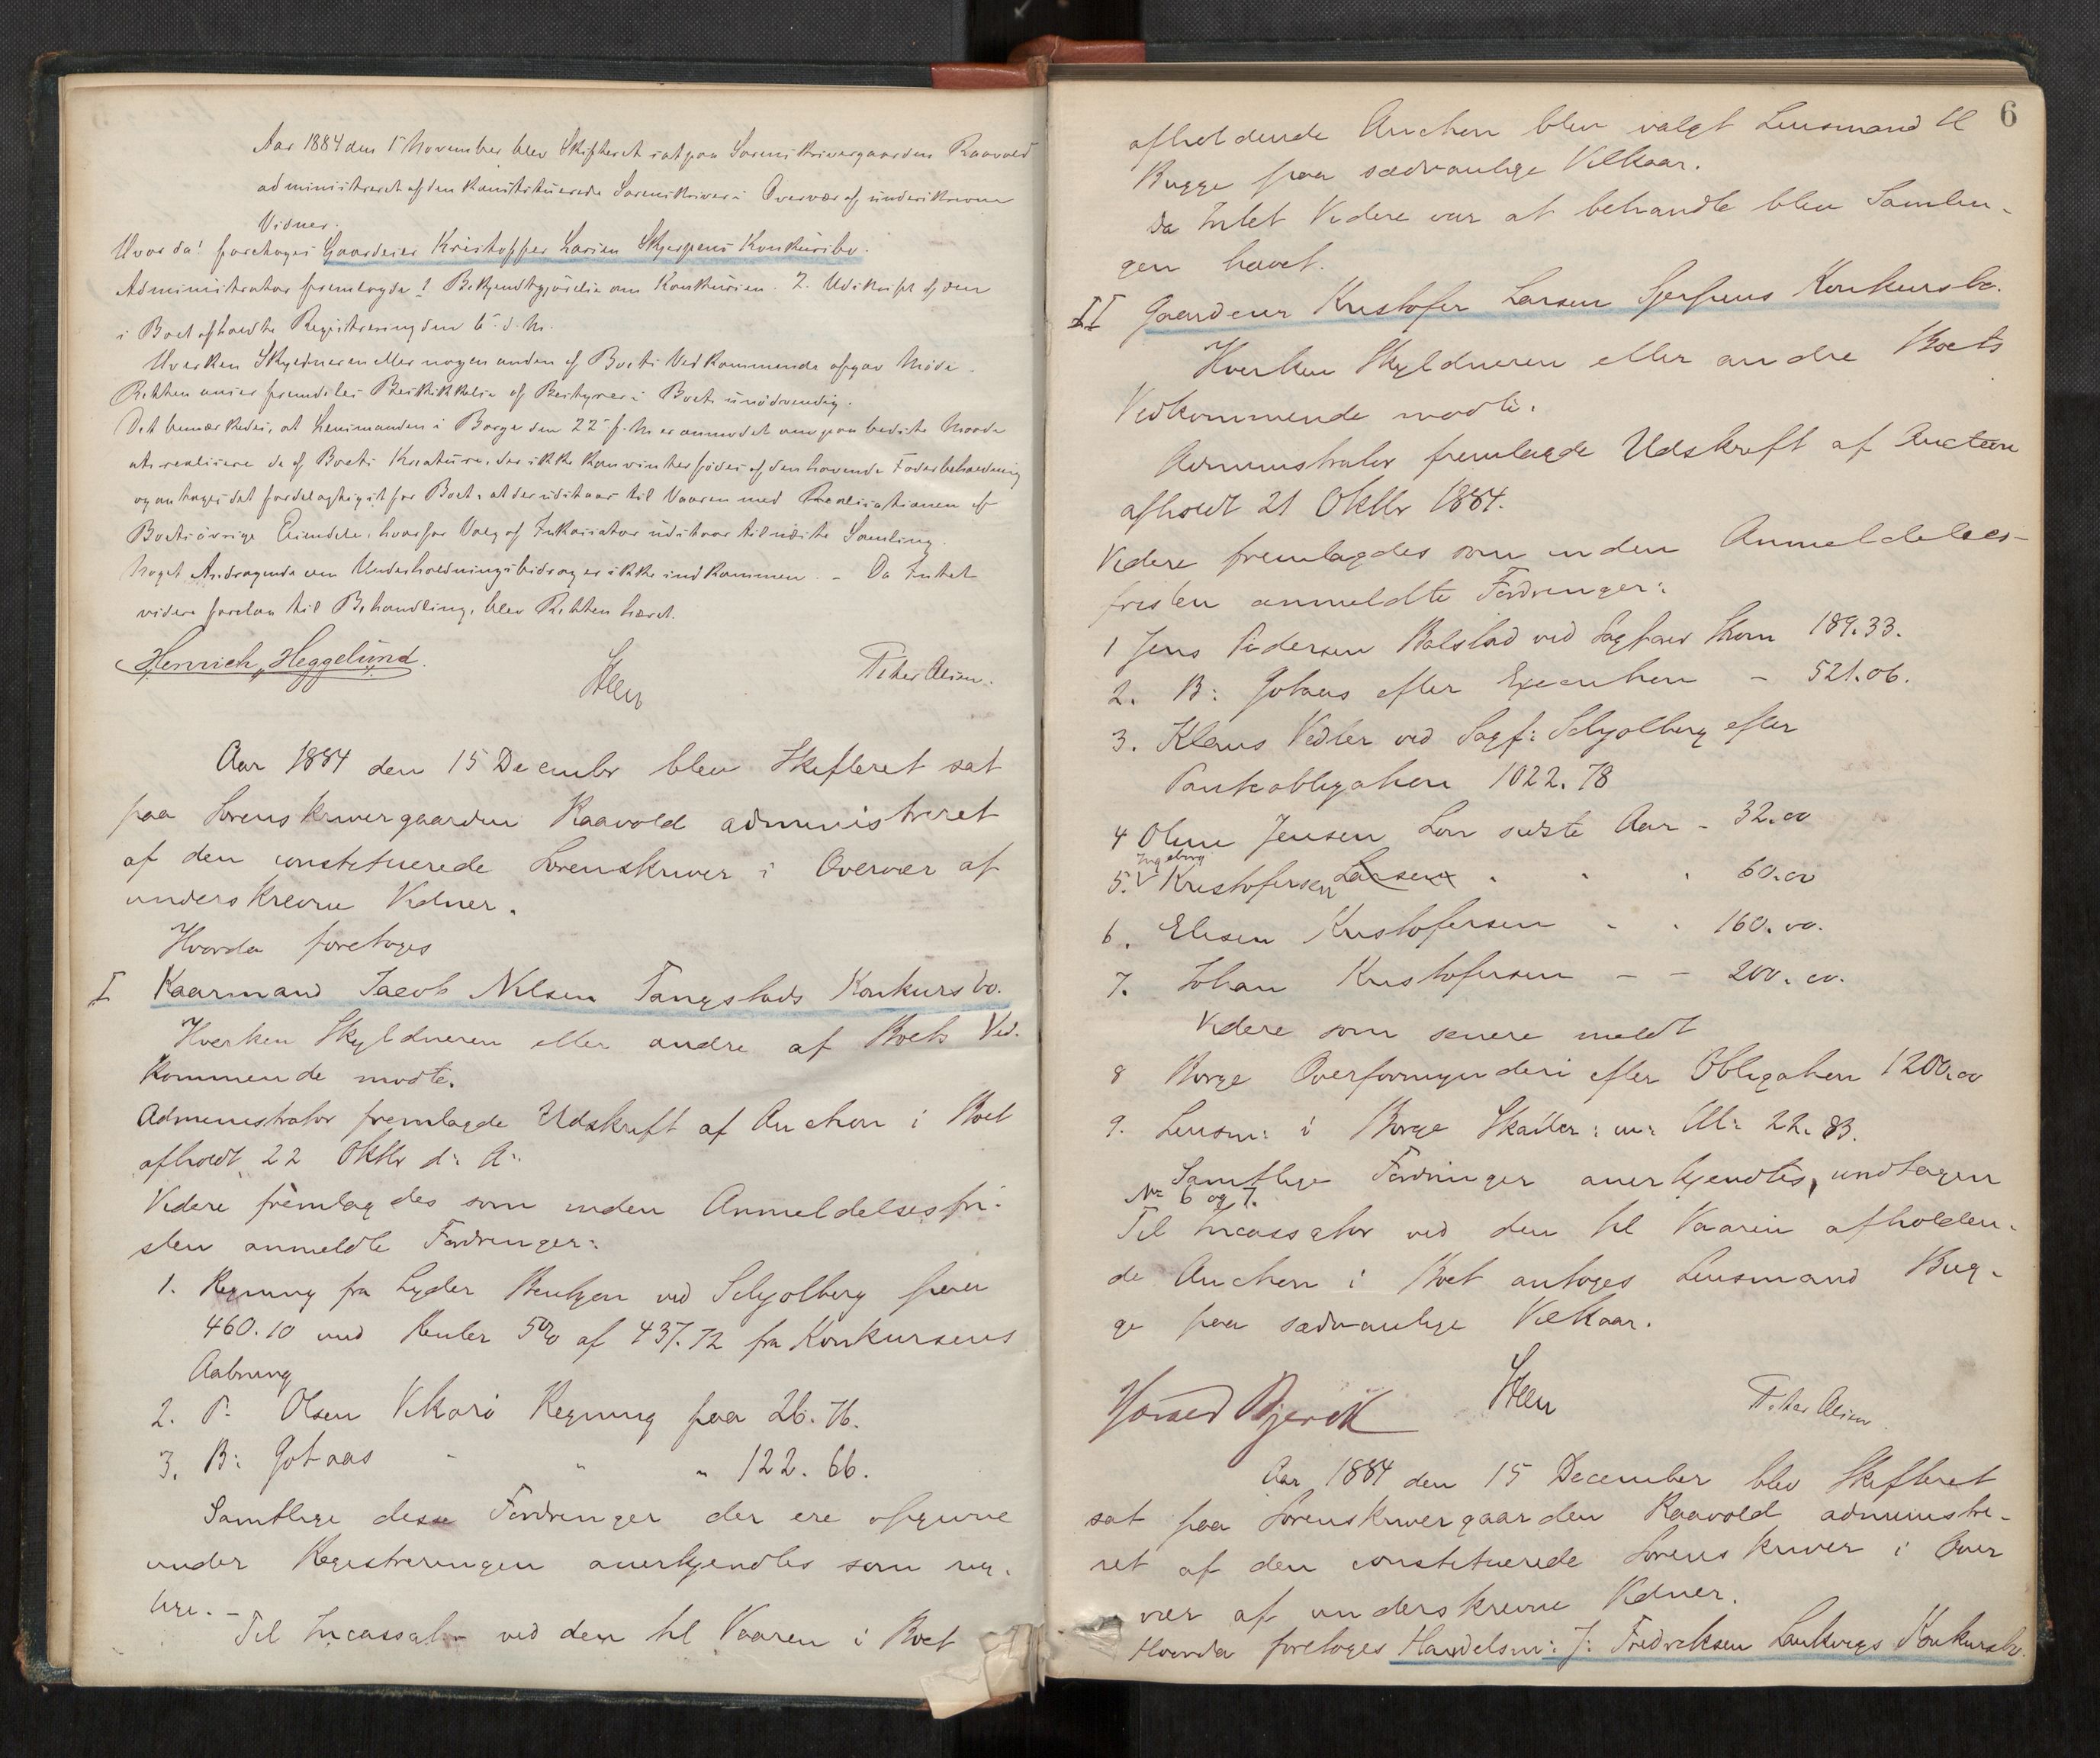 Aar 1884 den 5 November blev Skifteret sat paa Sorenskrivergaarden Raavold
administreret af den konstituerede Sorenskriver i Overvær af underskrevne
Vidner.
Hvor da! foretoges Gaardeier Kristoffer Larsen Skjerpens Konkursbo.
Administrator fremlagde 1 Bekjendtgjørelse om Konkursen. 2. Udskrift af den
i Boet afholdte Registrering den 6 d. M.
Hverken Skyldneren eller nogen anden af Boets Vedkommende afgav Møde.
Retten anser fremdeles Beskikkelse af Bestyrer i Boet unødvendig.
Det bemærkedes, at Lensmanden i Borge den 22 f. M. er anmodet om paa bedste Maade
at realisere de af Boets Kreature, der ikke kan vinterfødes af den havende Foderbeholdning
og antages det fordelagtigst for Boet, at der udstaar til Vaaren med Realisationen af
Boets øvrige Eiendele, hvorfor Valg af Inkassator udstaar til næste Samling.
Noget Andragende om Underholdningsbidrag er ikke indkommen. - Da Intet
videre forelaa til Behandling, blev Retten hævet.
Henrich Heggelund. Steen Peter Olsen.
Aar 1884 den 15 Decembr blev Skifteret sat
paa Sorenskrivergaarden Raavold administreret
af den constituerede Sorenskriver i Overvær af
underskrevne Vidner.
Hvorda foretoges
I Kaarmand Jacob Nilsen Tangstads Konkursbo.
Hverken Skyldneren eller andre af Boets Ved-
kommende mødte.
Administrator fremlagde Udskrift af Auction i Boet
afholdt 22 Oktbr d: A:
Videre fremlagdes som inden Anmeldelsesfri-
sten anmeldte Fordringer:
1. Regning fra Lyder Bentzen ved Schjolberg paa
460.10 med Renter 5% af 437.72 fra Konkursens
Aabning
2. P. Olsen Regning paa 26.76.
3. B: Gotaas - " " 122.66.
Samtlige disse Fordringer der ere opgivne
under Registreringen anerkjendtes som rig-
tige. -
Til Incassator ved den til Vaaren i Boet
6
afholdende Auction blev valgt Lensmand
Bugge paa sædvanlige Vilkaar.
Da Intet Videre var at behandle blev Samlin-
gen hævet.
II Gaardeier Kristofer Larsen Sjerpens Konkursbo.
Hverken Skyldneren eller andre Boets
Vedkommende mødte.
Administrator fremlagde Udskrift af Auction
afholdt 21 Oktbr 1884.
Videre fremlagdes som inden Anmeldelses-
fristen anmeldte Fordringer:
1 Jens Pedersen Balstad ved Sagfører 189.33.
2. B: Gotaas efter Execution - 521.06.
3. Klaus Vedler ved Sagf: Schjolberg efter
Pantobligation 1022.78
4 Oline Jensen Løn sidste Aar - 32.00
Ingeborg
5. Kristofersen Larsen " " " 60.00
6. Elisen Kristofersen " " 160.00.
7. Johan Kristofersen - - 200.00.
Videre som senere meldt
8 Borge Overformynderi efter Obligation 1200.00
9. Lensm: i Borge Skatter: m: M: 22.83.
Samtlige Fordringer anerkjendtes, undtagen
No 6 og 7.
Til Incassator ved den til Vaaren afholden-
de Auction i Boet antoges Lensmand Bug-
ge paa sædvanlige Vilkaar.
Steen Peter Olsen
Aar 1884 den 15 December blev Skifteret
sat paa Sorenskrivergaarden Raavold administre-
ret af den constituerede Sorenskriver i Over
vær af underskrevne Vidner.
Hvorda foretoges Handelsm: J: Fredriksen Laukvigs Konkursbo.